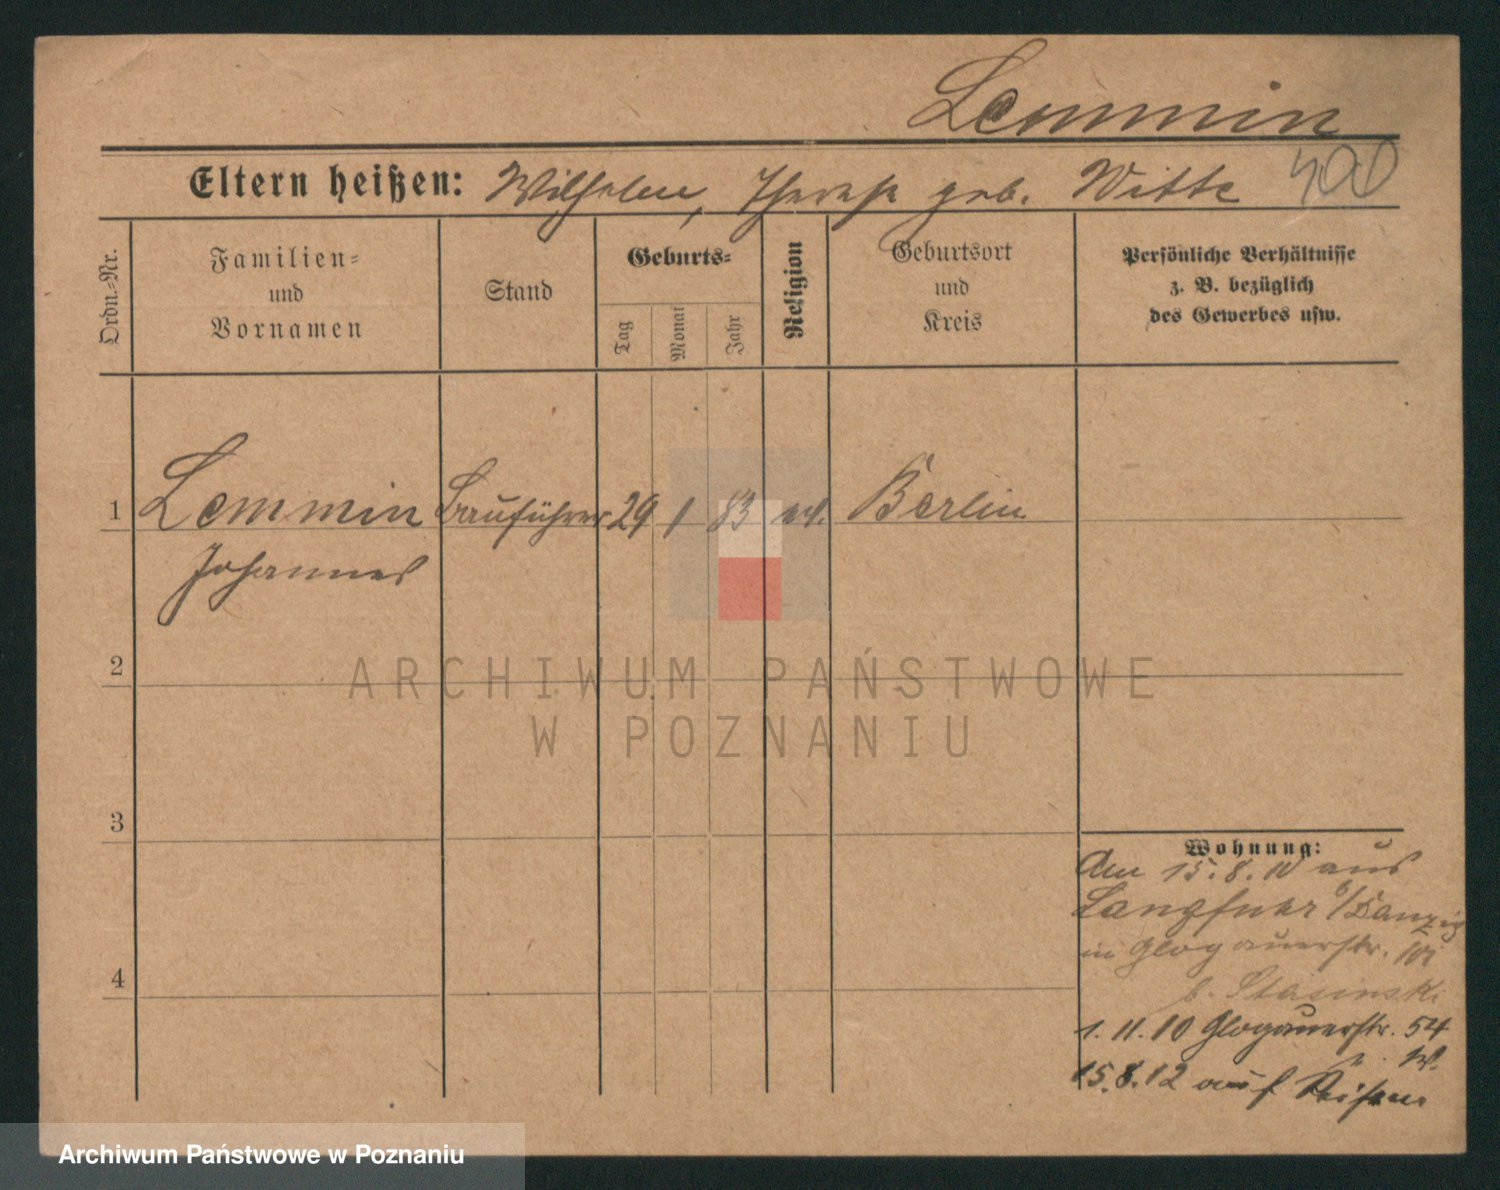 Lemmin
400
Eltern heißen: Wilhelm, Therese geb. Witte
Ordn.-Nr.
Familien-
und
Vornamen
Stand
Geburts-
Tag
Monat
Jahr
Religion
Geburtsort
und
Kreis
Persönliche Verhältnisse
z. B. bezüglich
des Gewerbes usw.
1 Lemmin Bauführer 29 1 83 ev. Berlin
Johannes
2
3
4
Wohnung:
Am 15.8.10 aus
Langfuhr b/Danzig
in Glogauerstr.
b. Stasinski
1.11.10 Glogauerstr. 54
15.8.12 auf Reisen
ARCHIWUM PAŃSTWOWE
W POZNANIU
Archiwum Państwowe w Poznaniu